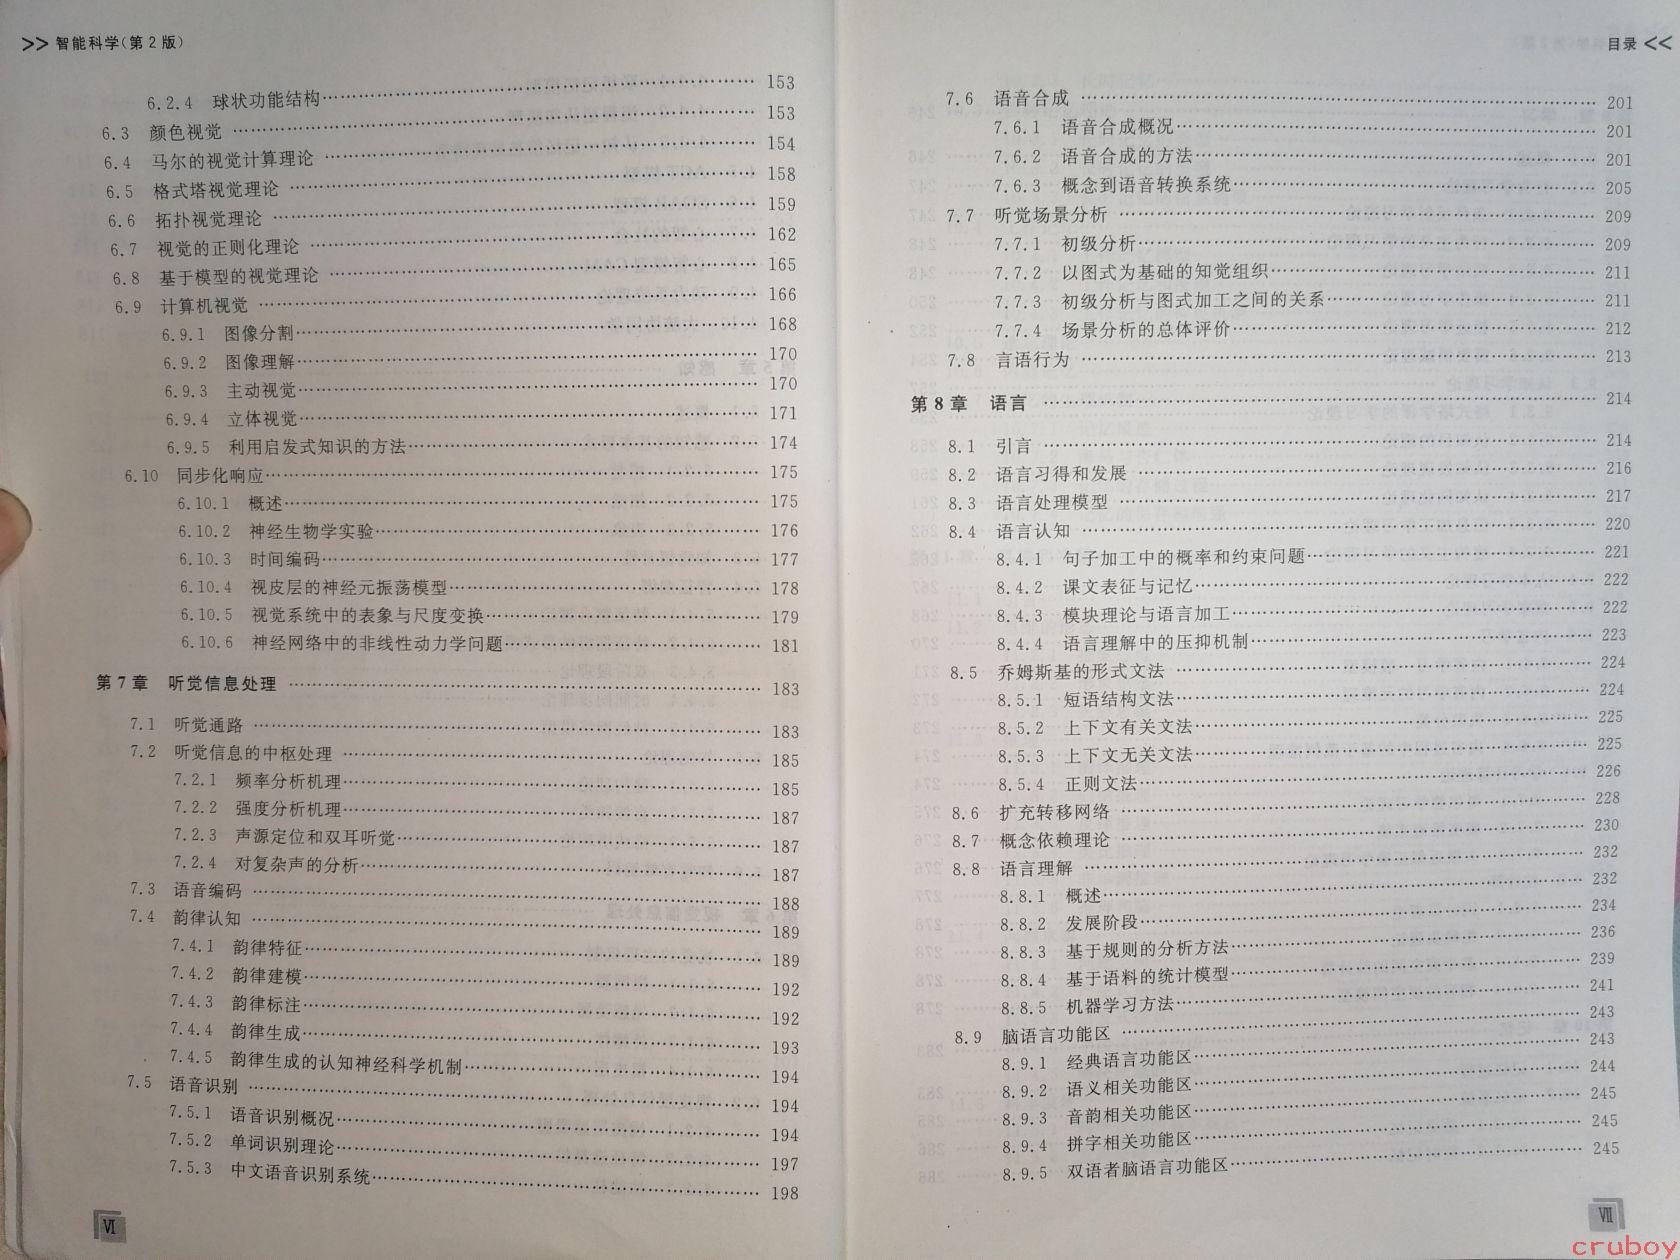 >> 智能科学(第2版)
6.2.4 球状功能结构 153
6.3 颜色视觉 153
6.4 马尔的视觉计算理论 154
6.5 格式塔视觉理论 158
6.6 拓扑视觉理论 159
6.7 视觉的正则化理论 162
6.8 基于模型的视觉理论 165
6.9 计算机视觉 166
6.9.1 图像分割 168
6.9.2 图像理解 170
6.9.3 主动视觉 170
6.9.4 立体视觉 171
6.9.5 利用启发式知识的方法 174
6.10 同步化响应 175
6.10.1 概述 175
6.10.2 神经生物学实验 176
6.10.3 时间编码 177
6.10.4 视皮层的神经元振荡模型 178
6.10.5 视觉系统中的表象与尺度变换 179
6.10.6 神经网络中的非线性动力学问题 181
第7章 听觉信息处理 183
7.1 听觉通路 183
7.2 听觉信息的中枢处理 185
7.2.1 频率分析机理 185
7.2.2 强度分析机理 187
7.2.3 声源定位和双耳听觉 187
7.2.4 对复杂声的分析 187
7.3 语音编码 188
7.4 韵律认知 189
7.4.1 韵律特征 189
7.4.2 韵律建模 192
7.4.3 韵律标注 192
7.4.4 韵律生成 193
7.4.5 韵律生成的认知神经科学机制 194
7.5 语音识别 194
7.5.1 语音识别概况 194
7.5.2 单词识别理论 197
7.5.3 中文语音识别系统 198
Ⅵ
目录 <<
7.6 语音合成 201
7.6.1 语音合成概况 201
7.6.2 语音合成的方法 201
7.6.3 概念到语音转换系统 205
7.7 听觉场景分析 209
7.7.1 初级分析 209
7.7.2 以图式为基础的知觉组织 211
7.7.3 初级分析与图式加工之间的关系 211
7.7.4 场景分析的总体评价 212
7.8 言语行为 213
第8章 语言 214
8.1 引言 214
8.2 语言习得和发展 216
8.3 语言处理模型 217
8.4 语言认知 220
8.4.1 句子加工中的概率和约束问题 221
8.4.2 课文表征与记忆 222
8.4.3 模块理论与语言加工 222
8.4.4 语言理解中的压抑机制 223
8.5 乔姆斯基的形式文法 224
8.5.1 短语结构文法 224
8.5.2 上下文有关文法 225
8.5.3 上下文无关文法 225
8.5.4 正则文法 226
8.6 扩充转移网络 228
8.7 概念依赖理论 230
8.8 语言理解 232
8.8.1 概述 232
8.8.2 发展阶段 234
8.8.3 基于规则的分析方法 236
8.8.4 基于语料的统计模型 239
8.8.5 机器学习方法 241
8.9 脑语言功能区 243
8.9.1 经典语言功能区 243
8.9.2 语义相关功能区 244
8.9.3 音韵相关功能区 245
8.9.4 拼字相关功能区 245
8.9.5 双语者脑语言功能区 245
Ⅶ
cruboy